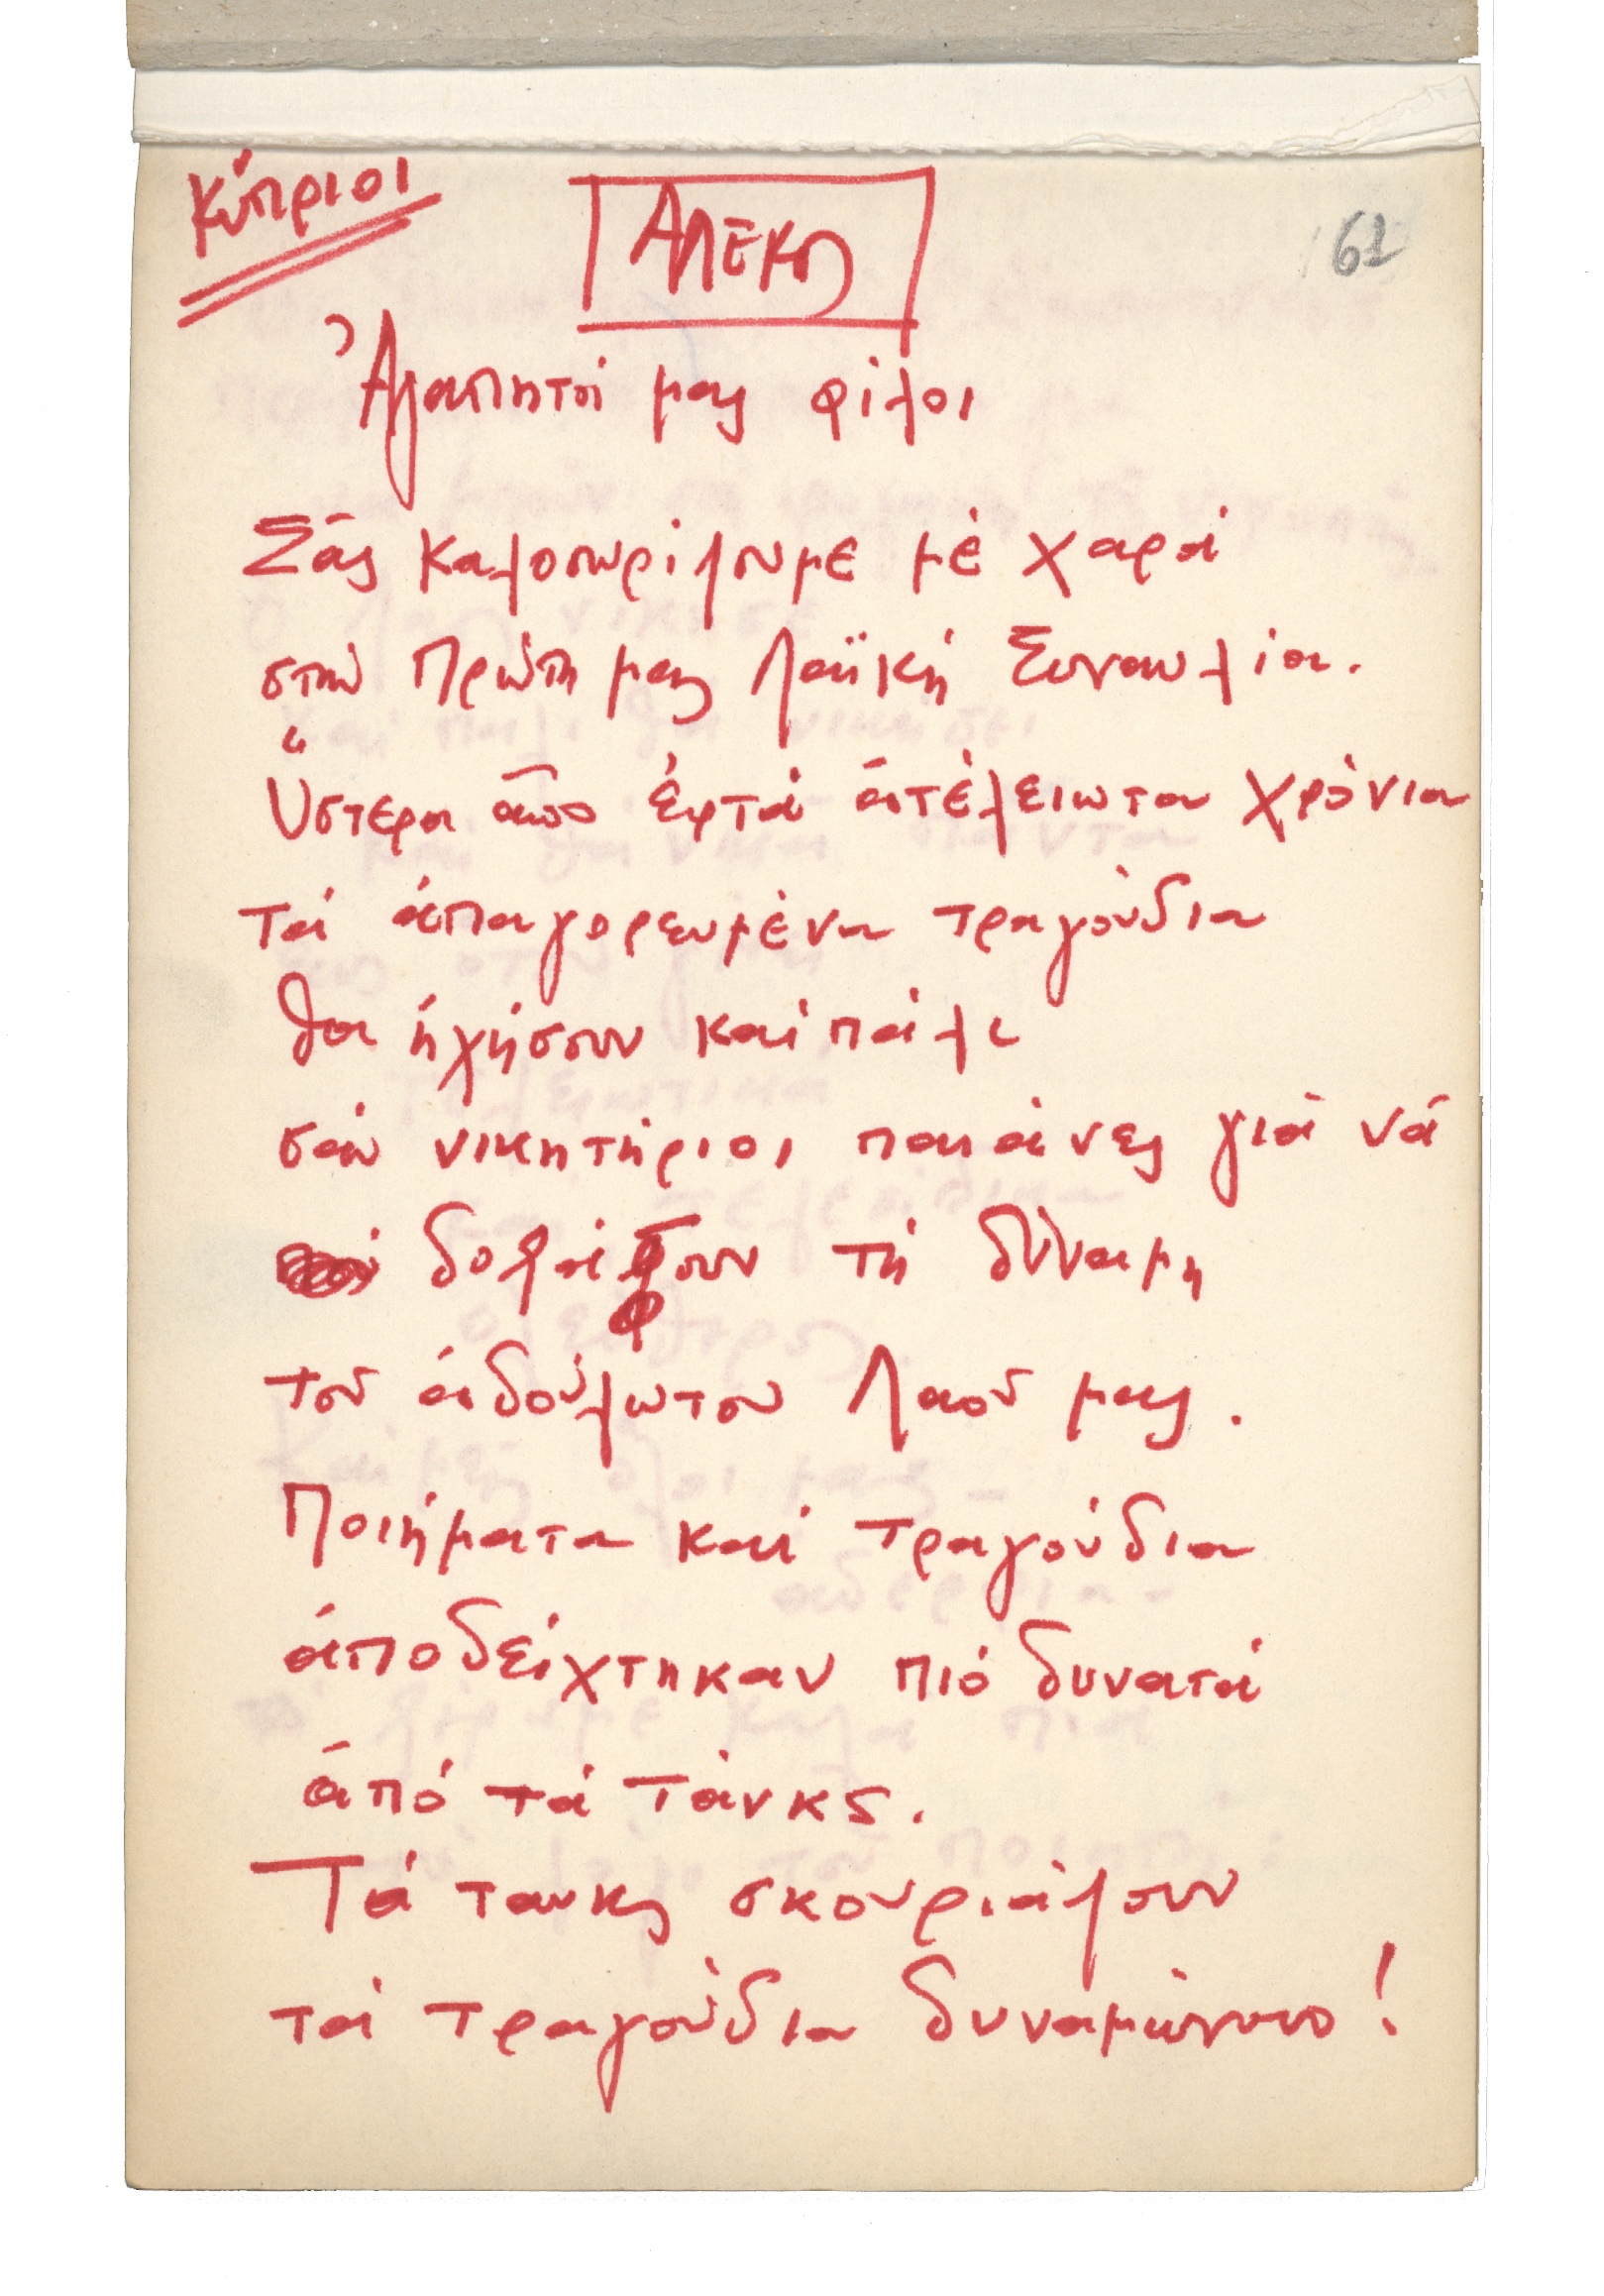 Κύπριοι
ΑΛΕΚΟς
61
Ἀγαπητοί μας φίλοι
Σᾶς καλοσωρίζουμε μέ χαρά
στήν Πρώτη μας Λαϊκή Συναυλία.
Ὕστερα ἀπό ἑφτά ἀτέλειωτα χρόνια
τά ἀπαγορευμένα τραγούδια
θά ἠχήσουν καί πάλι
σάν νικητήριοι παιάνες γιά νά
δοξάσουν τή δύναμη
τοῦ ἀδούλωτου Λαοῦ μας.
Ποιήματα καί τραγούδια
ἀποδείχτηκαν πιό δυνατά
ἀπό τά τάνκς.
Τά τανκς σκουριάζουν
τά τραγούδια δυναμώνουν!